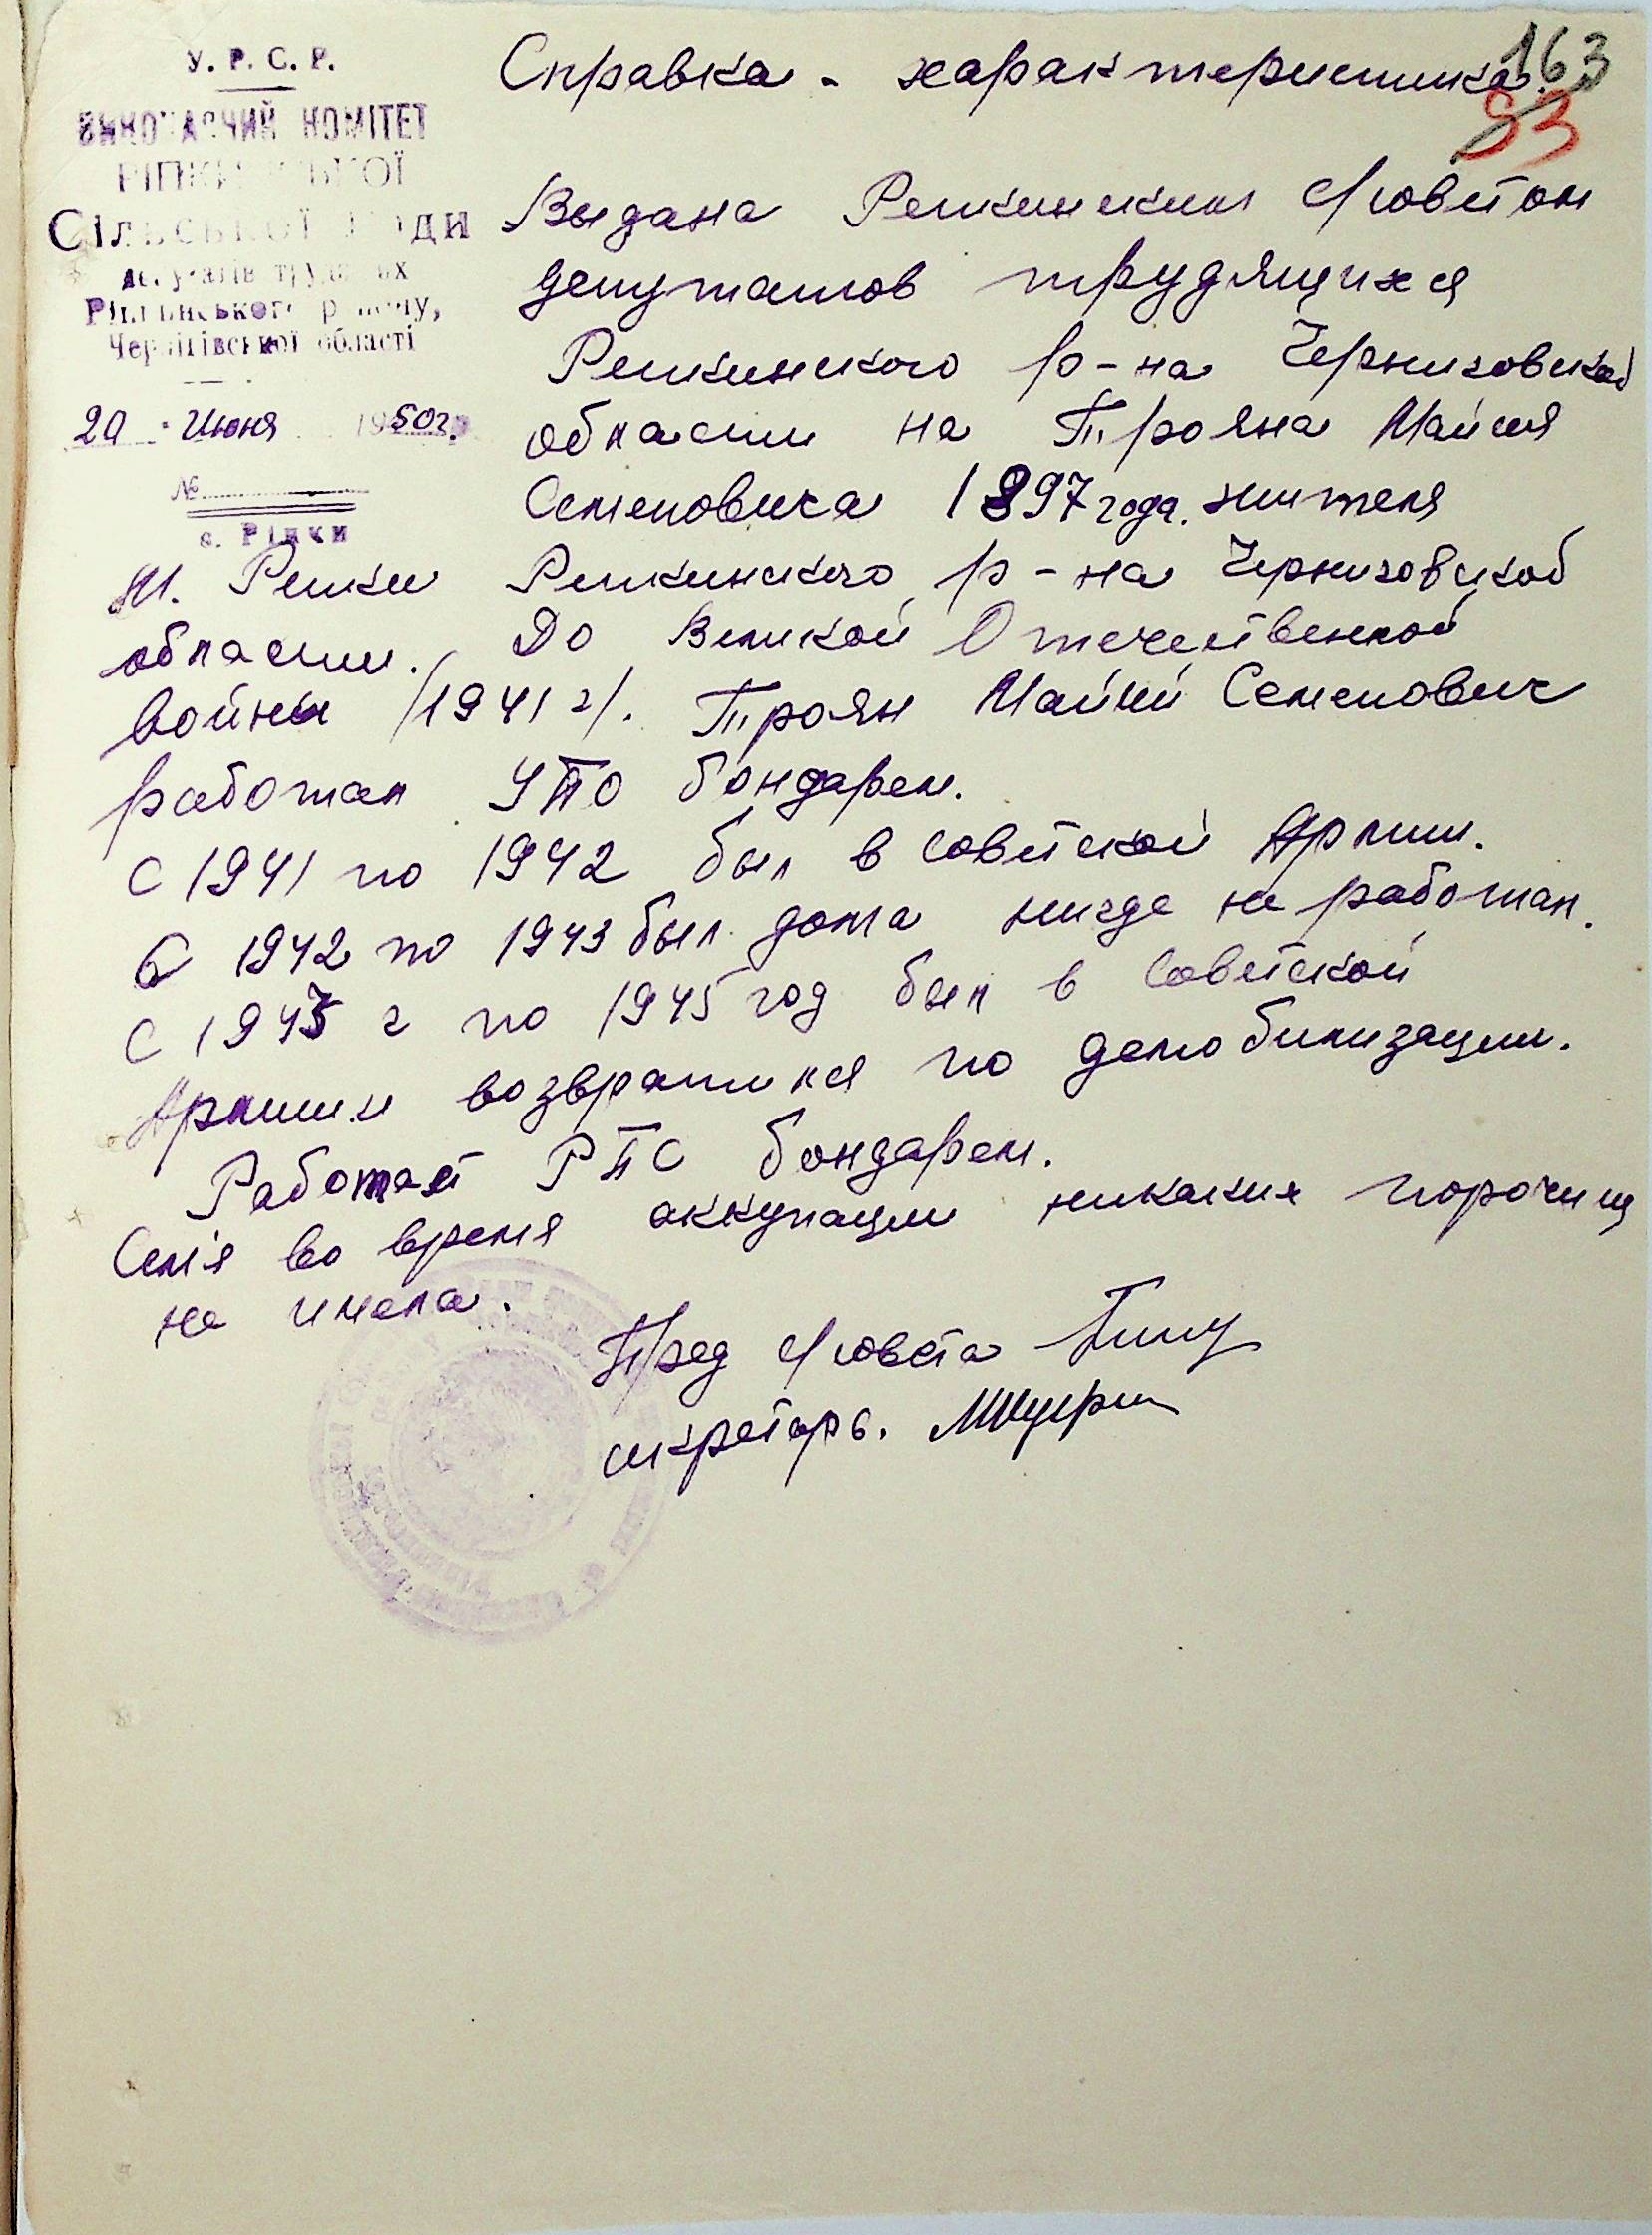 163
83
У. Р. С. Р.
ВИКОНАВЧИЙ КОМІТЕТ
РІПКИНСЬКОЇ
СІЛЬСЬКОЇ РАДИ
депутатів трудящих
Ріпкинського району,
Чернігівської області
20 Июня 1950г.
№
с. Ріпки
Справка - характеристика.
Выдана Репкинским с/советом
депутатов трудящихся
Репкинского р-на Черниговской
области на Трояна Майсея
Семеновича 1897 года. жителя
м. Репки Репкинского р-на Черниговской
области. До Великой Отечественной
войны /1941 г/. Троян Майсей Семенович
работал УПО бондарем.
С 1941 по 1942 был в советской Армии.
С 1942 по 1943 был дома нигде не работал.
С 1943 г по 1945 год был в Советской
Армии и возвратился по демобилизации.
Работает РПС бондарем.
Семя во время аккупации никаких порочищ
не имела.
Пред с/совета
секретарь.